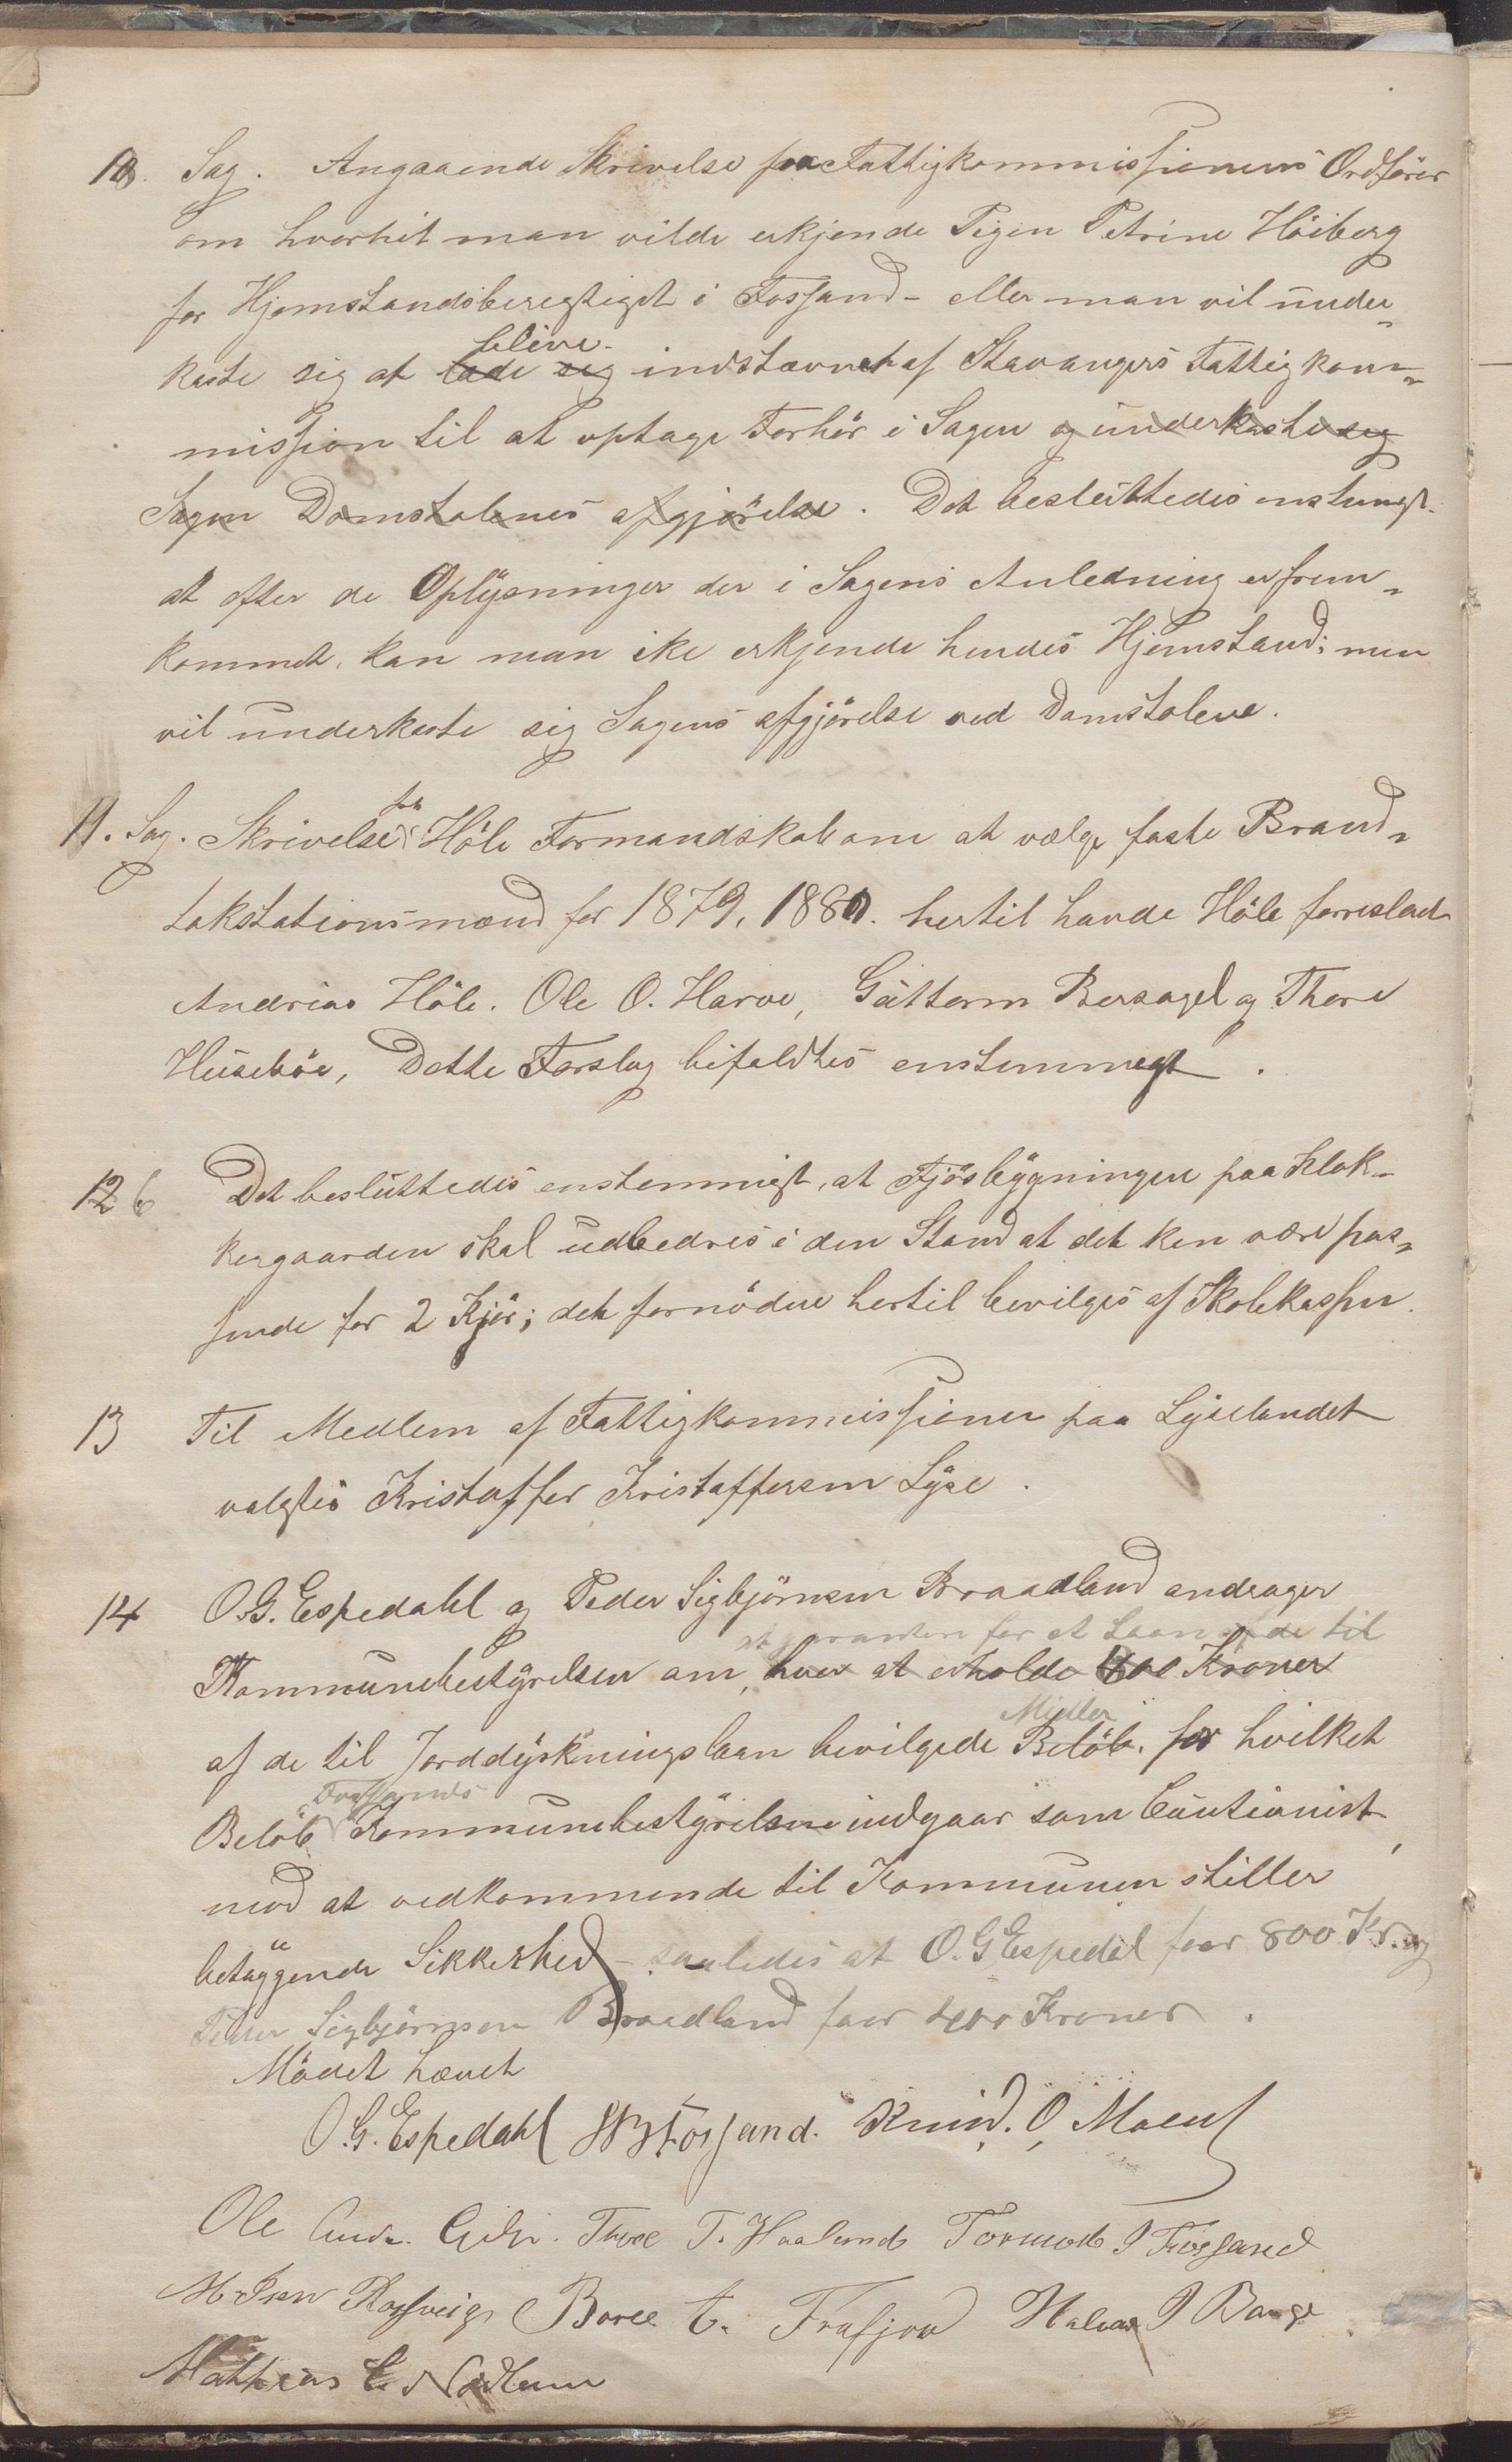 10. Sag. Angaaende Skrivelse fra Fattigkommissionens Ordförer
om hvorvit man vilde erkjende Pigen Petrine Höiberg
for Hjemstandsberegtiget i Fossand - eller man vil under-
blive
kaste sig at lade sig indstævnet af Stavangers Fattigkom-
mission til at optage Forhör i Sagen og underkaste sig
Sagen Domstolenes afgjörelse. Det besluttedes enstemigt.
at efter de Oplysninger der i Sagens Anledning er frem-
kommet, kan man ike erkjende hendes Hjemstand; men
vil underkaste sig Sagens afgjörelse ved Domstolene.
fra
11. Sag. Skrivelse i Höle Formandskab om at vælge faste Brand-
takstationsmænd for 1879, 1880. hertil havde Höle forreslaad
Andreas Höle. Ole O. Harve, Guttorm Bersagel og Thore
Huseböe, Dette Forslag bifaldtes enstemmegt.
12 6 Det besluttedes enstemmigt, at Fjösbygningen paa Klok-
kergaarden skal udbedres i den Stand at det kan være pas-
sende for 2 Kjör; det fornödne hertil bevilges af Skolekassen.
13 Til Medlem af Fattigkommissionen paa Lyselandet
valgtes Kristoffer Kristoffersen Lyse.
14 O. G. Espedahl og Peder Sigbjörnsen Braadland andrager
at garantere for et Laan til
Kommunebestyrelsen om, hver at erholde 600 Kroner
Midler
af de til Jorddyrkningslaan bevilgede Belöb. for hvilket
Fossands
Belöb Kommunebestyrelsen indgaar som Cautionist,
mod at vedkommende til Kommunen stiller
betyggende Sikkerhed - saaledes at O. G Espedal faar 800 Kr. og
Peder Sigbjörnsen Braadland faar 400 Kroner.
Mödet hævet
O. G. Espedahl Fossand. Knud. O, Moen
Ole Andr. Thore T. Haaland Tormod Fossand
Rossvig Boree T. Frafjord Halvar Barge
Mathias